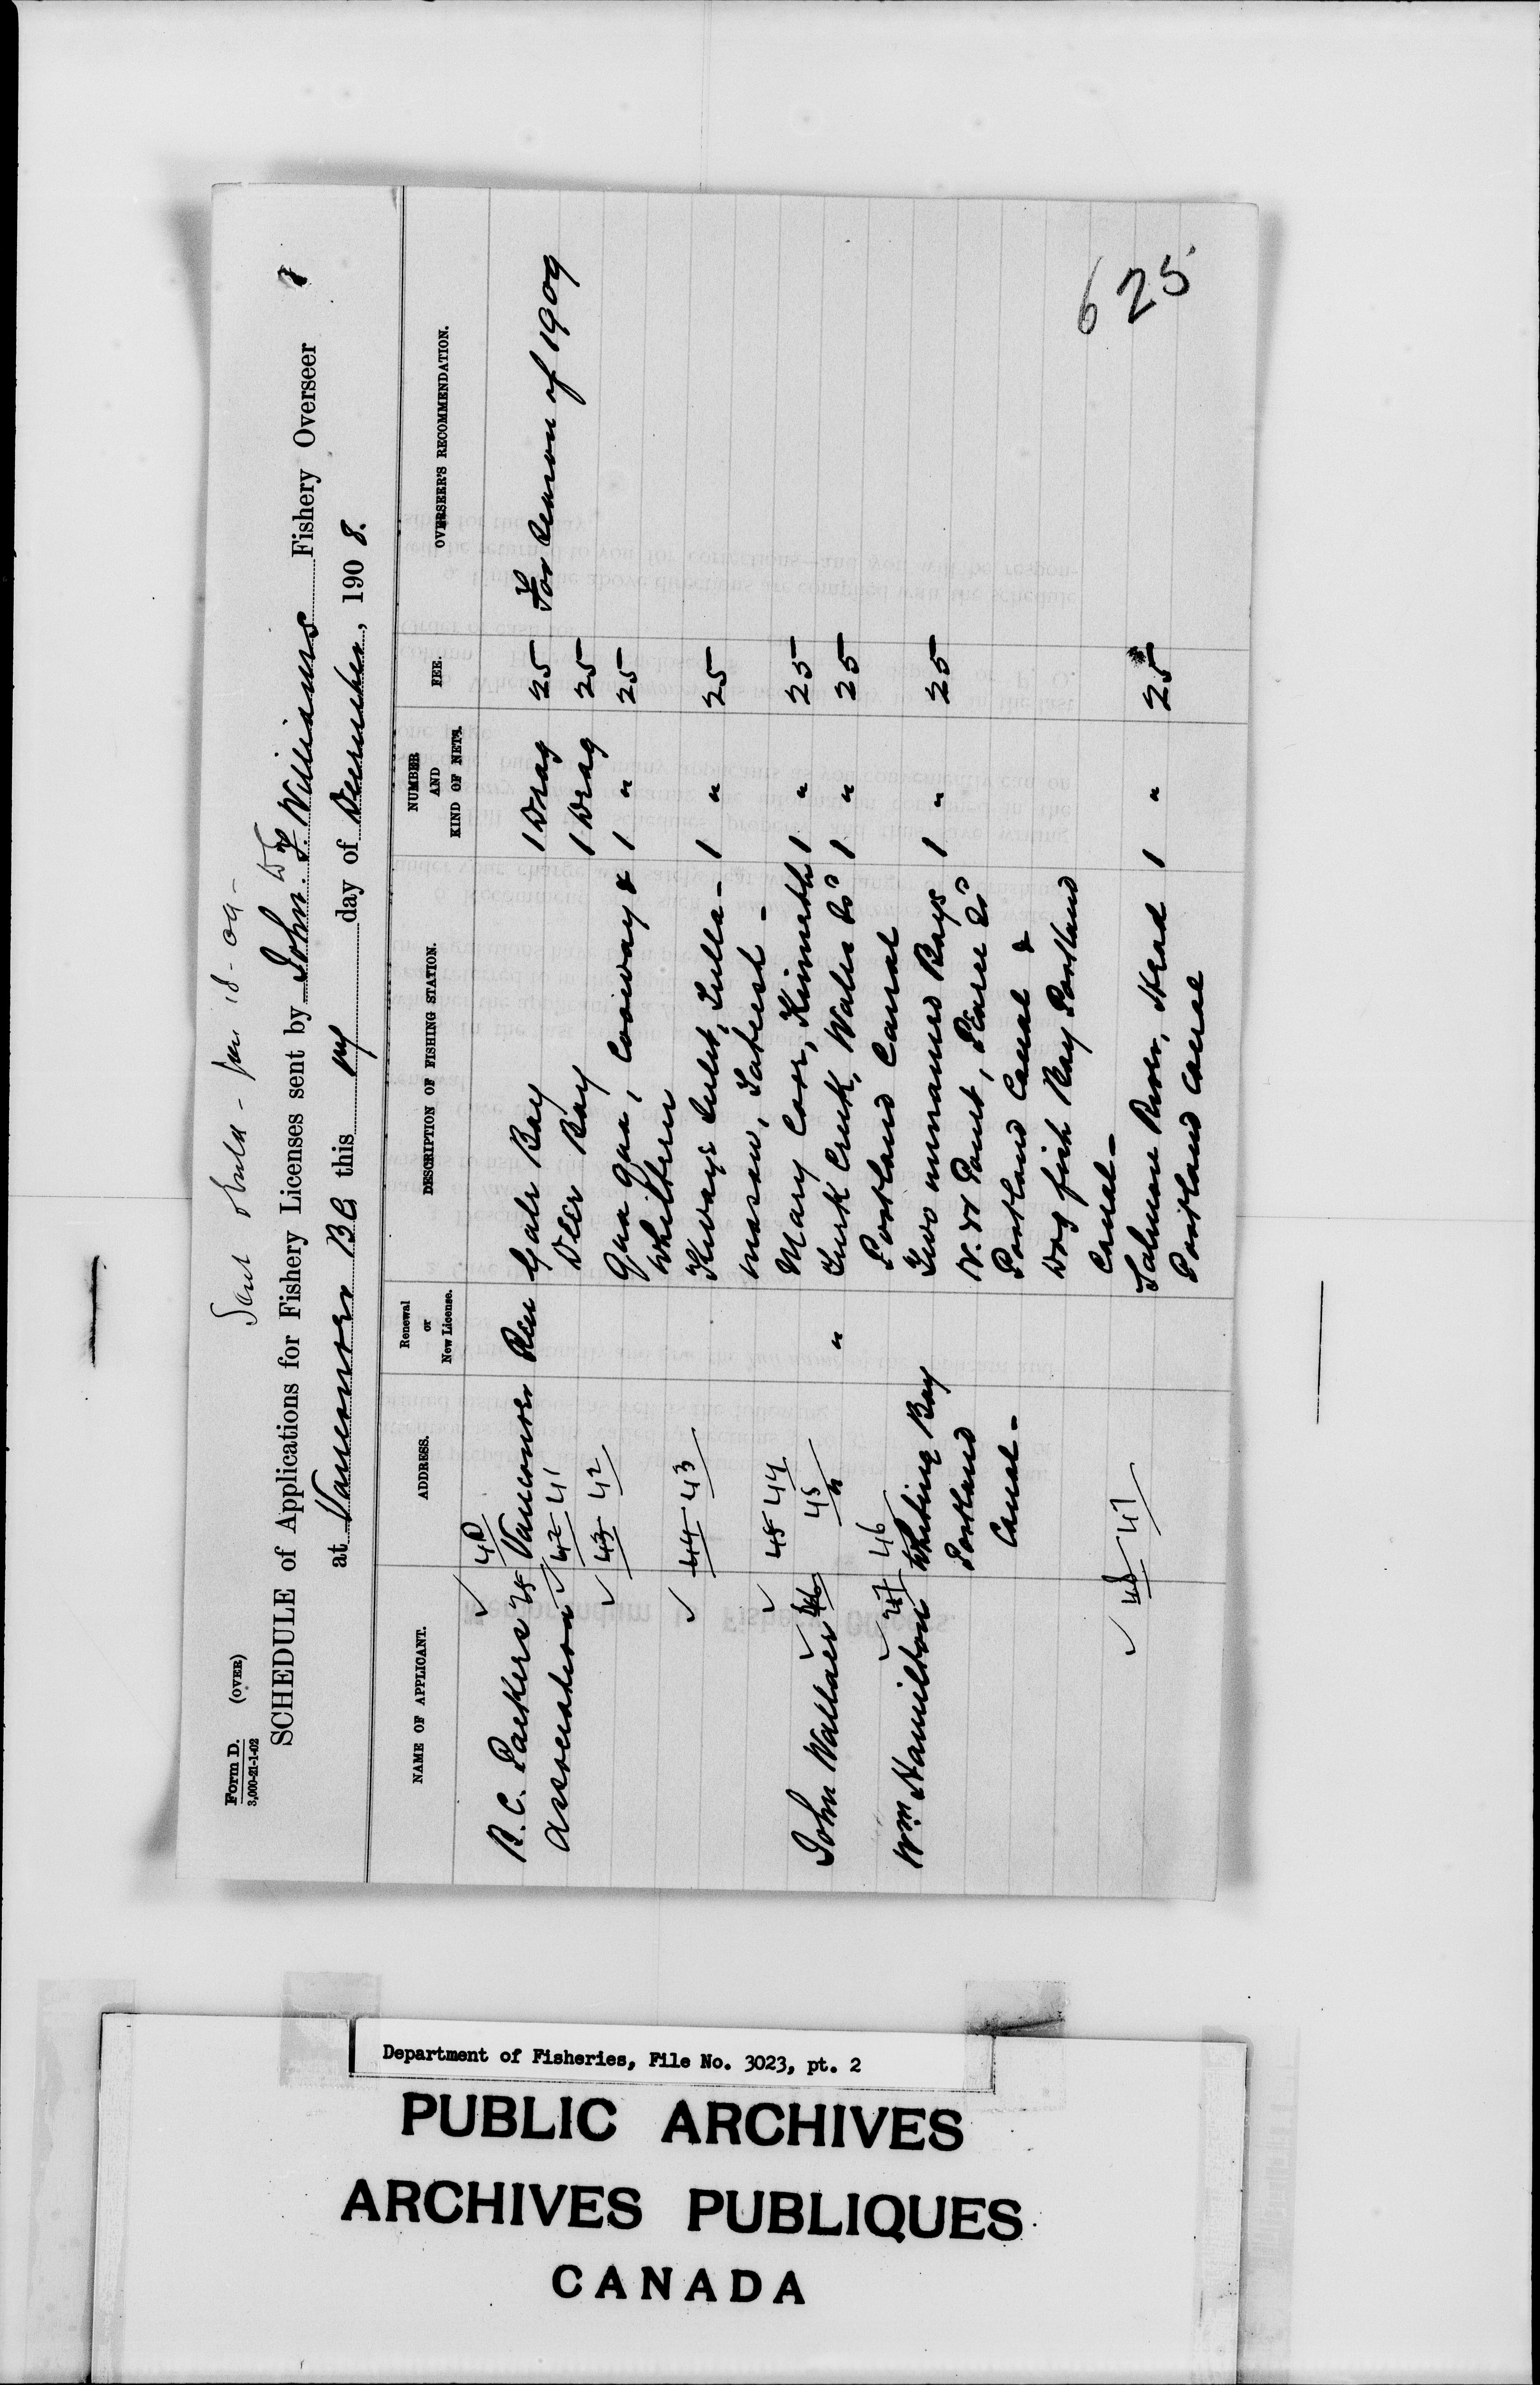 Form D. (OVER)
3,000-21-1-02
Sent Jan 18-09-
SCHEDULE of Applications for Fishery Licenses sent by John. T. Williams Fishery Overseer
at Vancouver BC this day of December, 1908.
NAME OF APPLICANT. ADDRESS. Renewal or New License. DESCRIPTION OF FISHING STATION. NUMBER AND KIND OF NETS. FEE. OVERSEER'S RECOMMENDATION.
40
B.C. Packers Vancouver Ren Gale Bay 1 Drag 25 For Season of 1909
Association 42 41 Deer Bay 1 Drag 25
43 42 Qua Qua, Conway & 1 " 25
Whiltern
44 43 Kways Inlet, Tulla- 1 " 25
masaw, Sateesh -
45 44 Mary Cove, Kinneth 1 " 25
45
John Wallace 46 " " Turk Creek, Wales Is 1 " 25
Portland Canal
47 46
Wm Hamilton Whiting Bay Two unnamed Bays 1 " 25
Portland N.W Point, Pearse Is
Canal - Portland Canal &
Dog fish Bay Portland
Canal -
48 47 Salmon River, Head 1 " 25
Portland Canal
625
Department of Fisheries, File No. 3023, pt. 2
PUBLIC ARCHIVES
ARCHIVES PUBLIQUES
CANADA